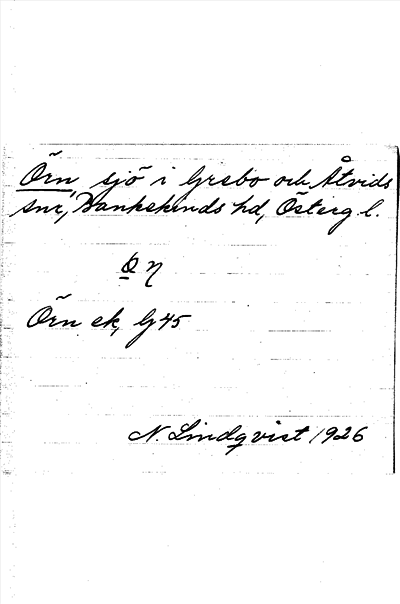 Örn, sjö i Grebo och Åtvids
snr, Bankekinds hd, Österg l.
Örn ek, G 45
N. Lindqvist 1926